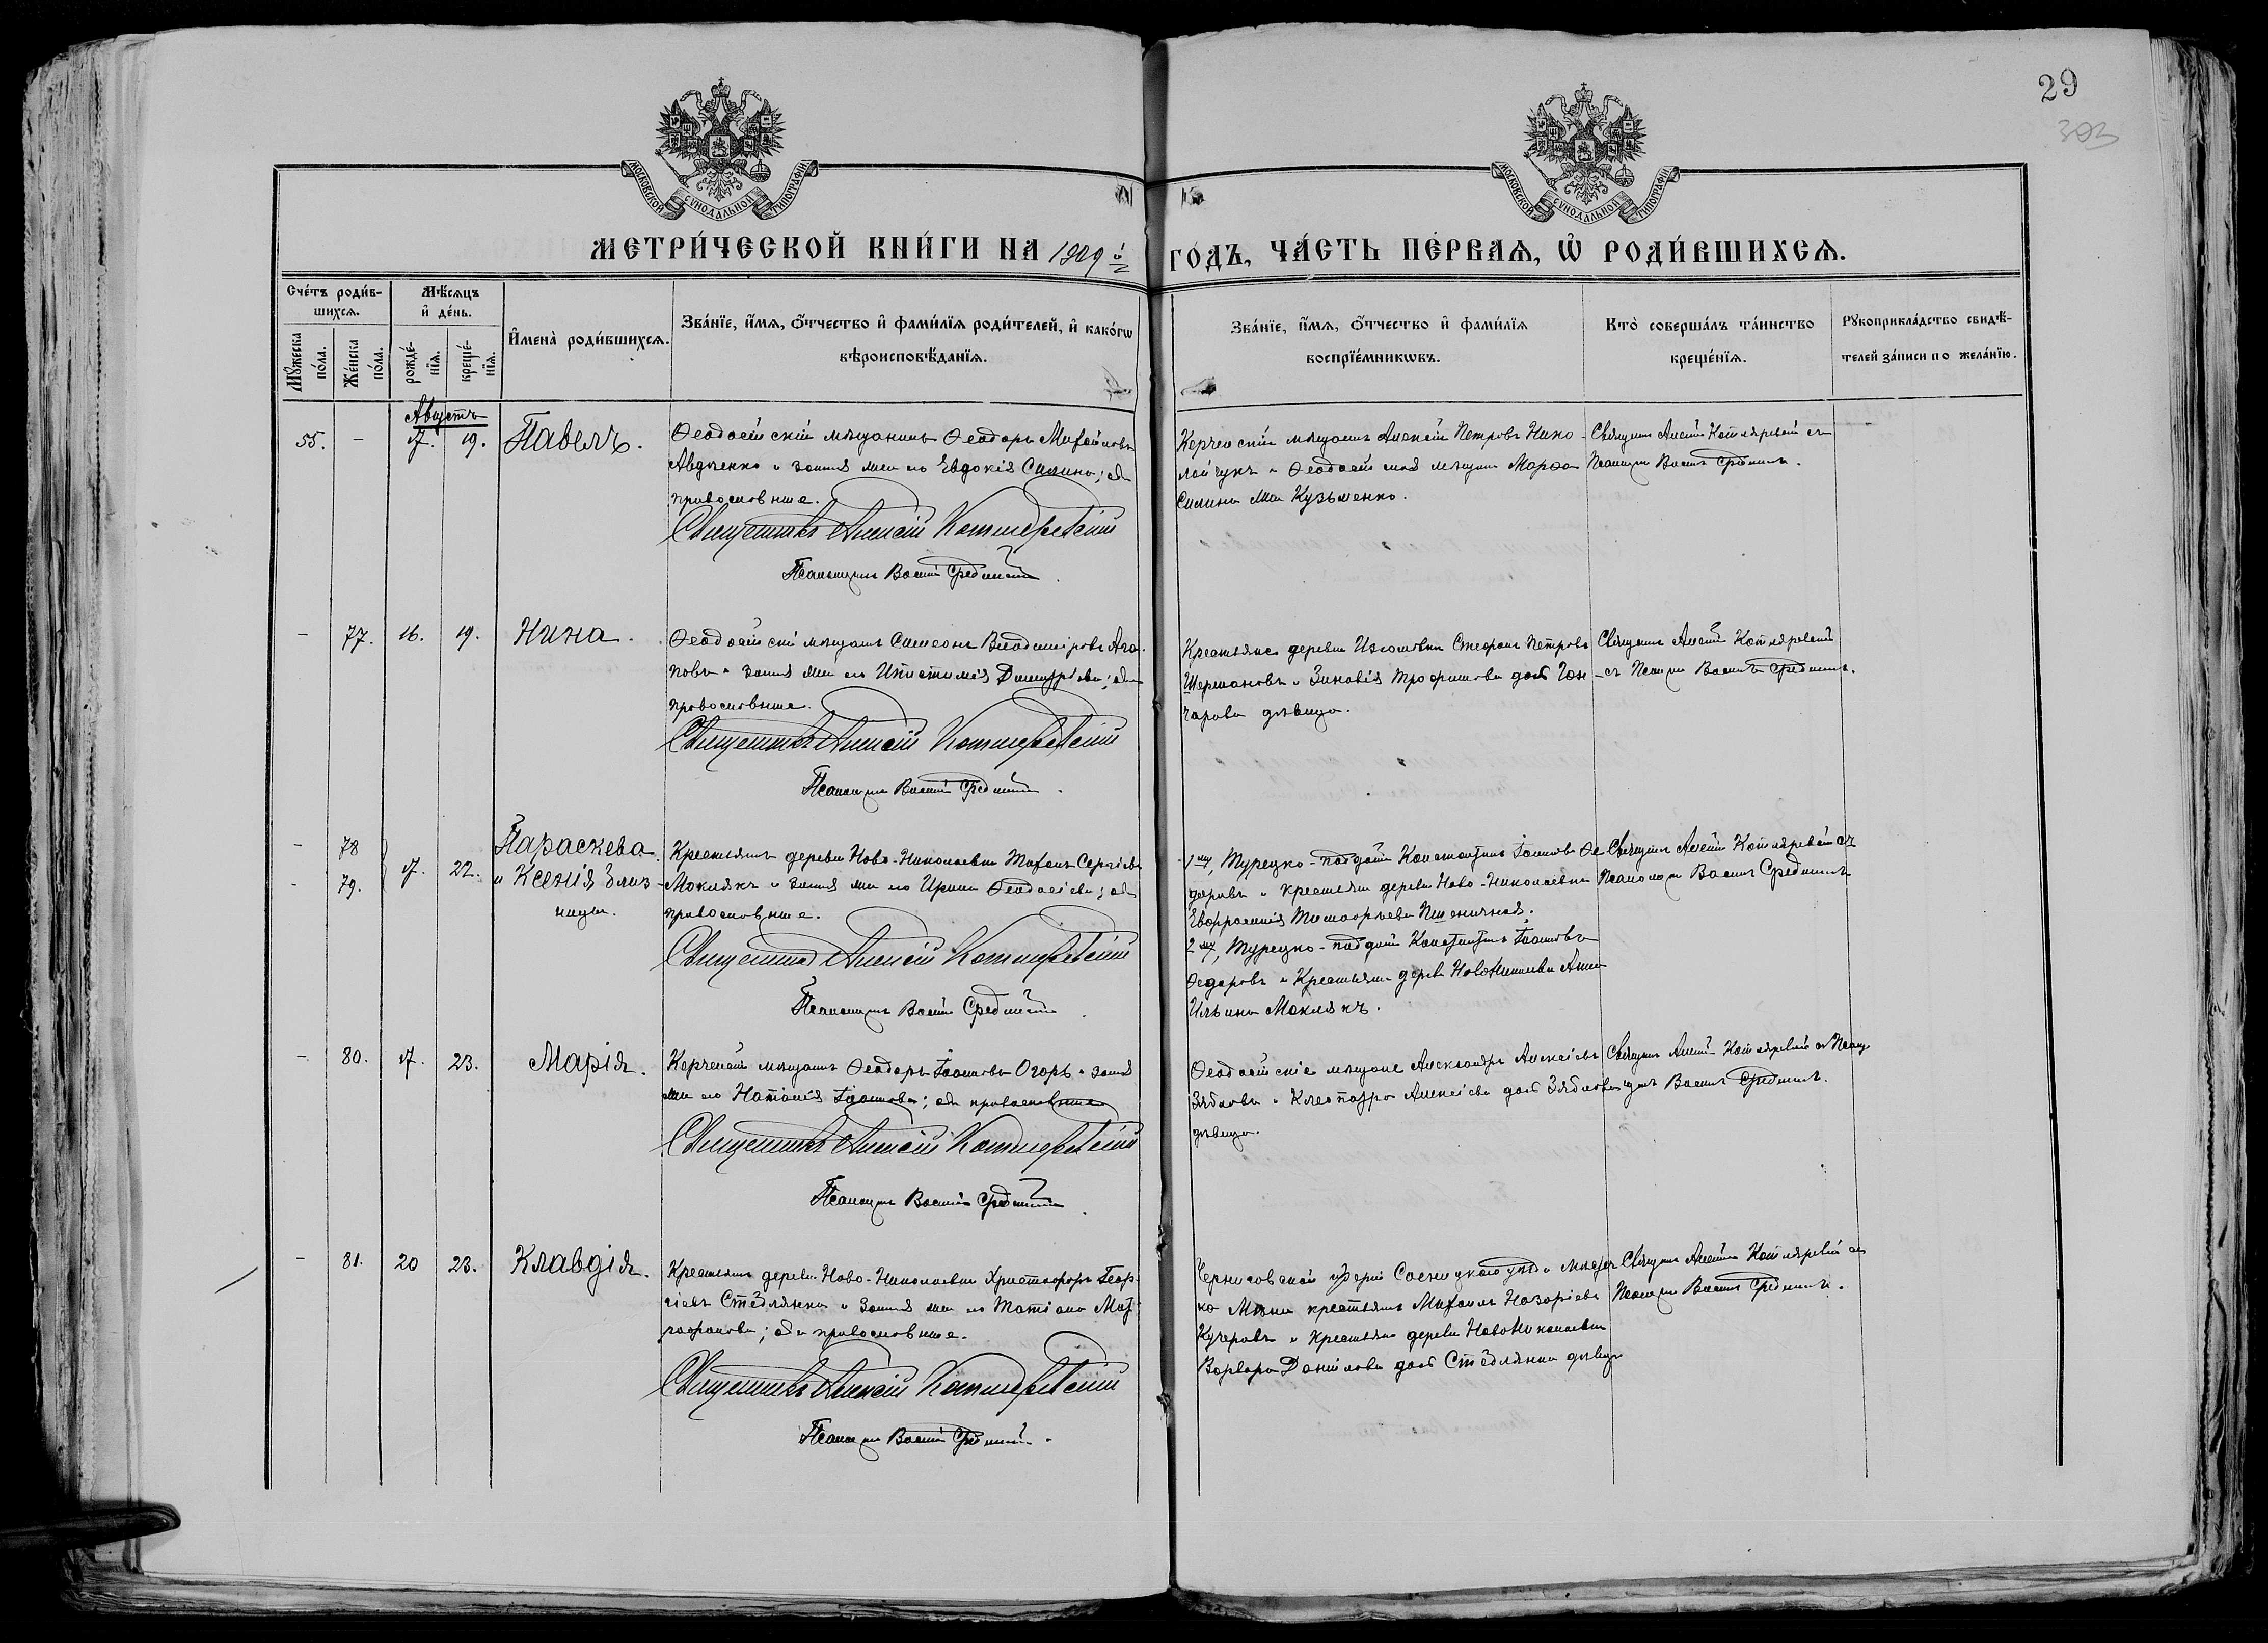 29
303
МОСКОВСКОЙ СѴНОДАЛЬНОЙ ТИПОГРАФІИ
МОСКОВСКОЙ СѴНОДАЛЬНОЙ ТИПОГРАФІИ
МЕТРИ́ЧЕСКОЙ КНИ́ГИ НА 1909 й ГО́ДЪ, ЧА́СТЬ ПЕ́РВАѦ, Ѡ҆ РОДИ́ВШИХСѦ.
Сче́тъ роди́в-
шихсѧ.
Мꙋ́жеска по́ла.
Же́нска по́ла.
Мѣ́сѧцъ
и҆ де́нь.
рожде́-нїѧ.
креще́-нїѧ.
И҆мена̀ роди́вшихсѧ.
Зва́нїе, и҆́мѧ, ѻ҆́тчество и҆ фами́лїѧ роди́телей, и҆ како́гѡ
вѣроисповѣ́данїѧ.
Зва́нїе, и҆́мѧ, ѻ҆́тчество и҆ фами́лїѧ
воспрїе́мникѡвъ.
Кто̀ соверша́лъ та́инство
креще́нїѧ.
Рꙋкоприкла́дство свидѣ́-
телей за́писи по жела́нїю.
Августъ
55. - 17. 19. Павелъ.
Ѳеодосійскій мѣщанинъ Ѳеодоръ Михайловъ
Авдѣенко и законная жена его Евдокія Силина; оба
православные.
Священникъ Алексій Котляревскій
Псаломщикъ Василій Средин
Керченскій мѣщанинъ Алексій Петровъ Нико-
лайчукъ и Ѳеодосійская мѣщанка Марѳа
Силина Кузьменко.
Священ Алексій Котляревскій съ
Псаломщ Васил Средин.
- 77. 16. 19. Нина.
Ѳеодосійскій мѣщан Симеонъ Владиміровъ Ага-
повъ и закон жена его Ипистимія Димитріева; оба
православные.
Священникъ Алексій Котляревскій
Псаломщикъ Василій Средин
Крестьянe деревни Изюмовки Стефан Петровъ
Шермановъ и Зиновія Трофимова дочь Гон-
чарова дѣвица.
Священ Алексій Котляревскій
съ Псаломщ Васил Средин.
- 78
- 79. 17. 22. Параскева
и Ксенія близ-
нецы.
Крестьянинъ деревни Ново-Николаевки Сергіевъ
Моклякъ и закон жена его Ирина Ѳеодосіева; оба
православные.
Священникъ Алексій Котляревскій
Псаломщикъ Василій Средин
1й, Турецко-подданый Константинъ Іоанновъ Ѳе-
доровъ и крестьянка деревни Ново-Николаевки
Евфросинія Тимофѣева Пшеничная.
2й, Турецко-подданый Константинъ Іоанновъ
Ѳедоровъ и крестьянка деревни Ново-Николаевки Анна
Ильина Моклякъ.
Священ Алексій Котляревскій съ
Псаломщ Васил Средин
- 80. 17. 23. Марія.
Керченскій мѣщанинъ Ѳеодоръ Іоанновъ Огорь и закон
жена его Наталія Іоаннова; оба православные
Священникъ Алексій Котляревскій
Псаломщикъ Василій Средин
Ѳеодосійскіе мѣщане Александръ Алексіевъ
Зябловъ и Клеопатра Алексіева дочь Зяблова
дѣвица.
Священ Алексій Котляревскій съ Псалом-
щикъ Васил Средин.
- 81. 20 23. Клавдія.
Крестьянинъ деревни Ново-Николаевки Христофоръ Геор-
гіевъ Стеблянко и закон жена его Татіана Мит-
рофанова; оба православные.
Священникъ Алексій Котляревскій
Псаломщ Василій Средин.
Черниговской губерніи Сосницкаго уѣзда мѣстеч-
ка Мѣны крестьянинъ Михаилъ Назаріевъ
Кучеровъ и крестьянка деревни Ново-Николаевки
Варвара Данилова дочь Стеблянко дѣвица
Священ Алексій Котляревскій съ
Псаломщ Васил Средин.